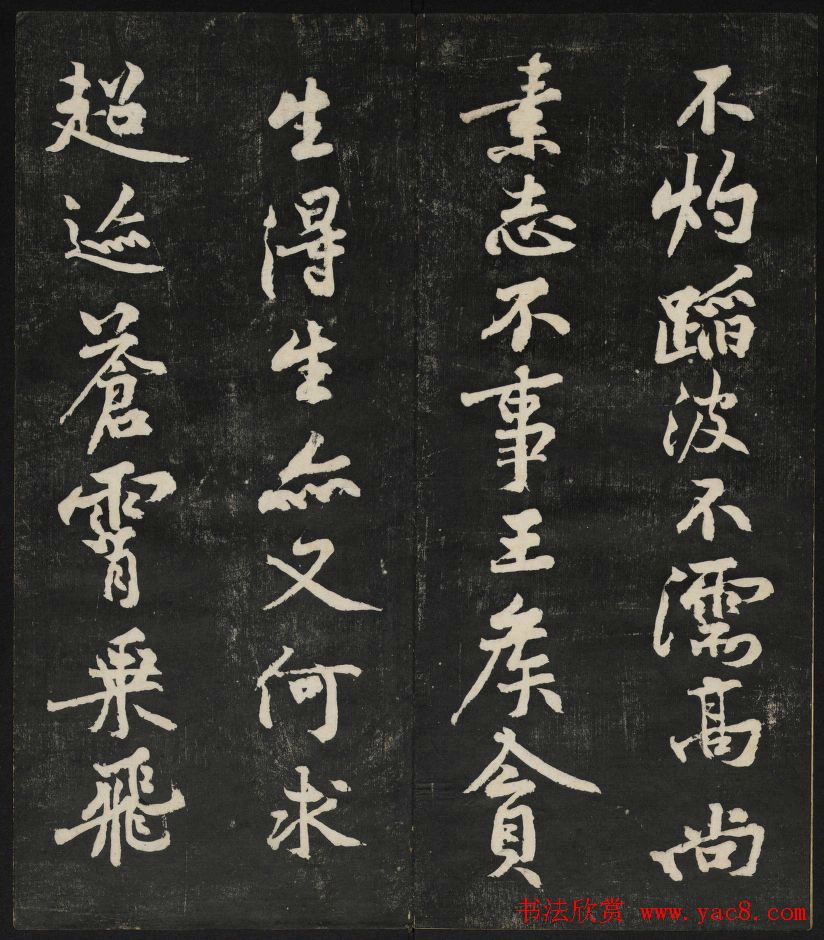 不灼蹈波不濡高尚
素志不事王侯貪
生得生亦又何求
超迹蒼霄乗飛
书法欣赏 www.yac8.com